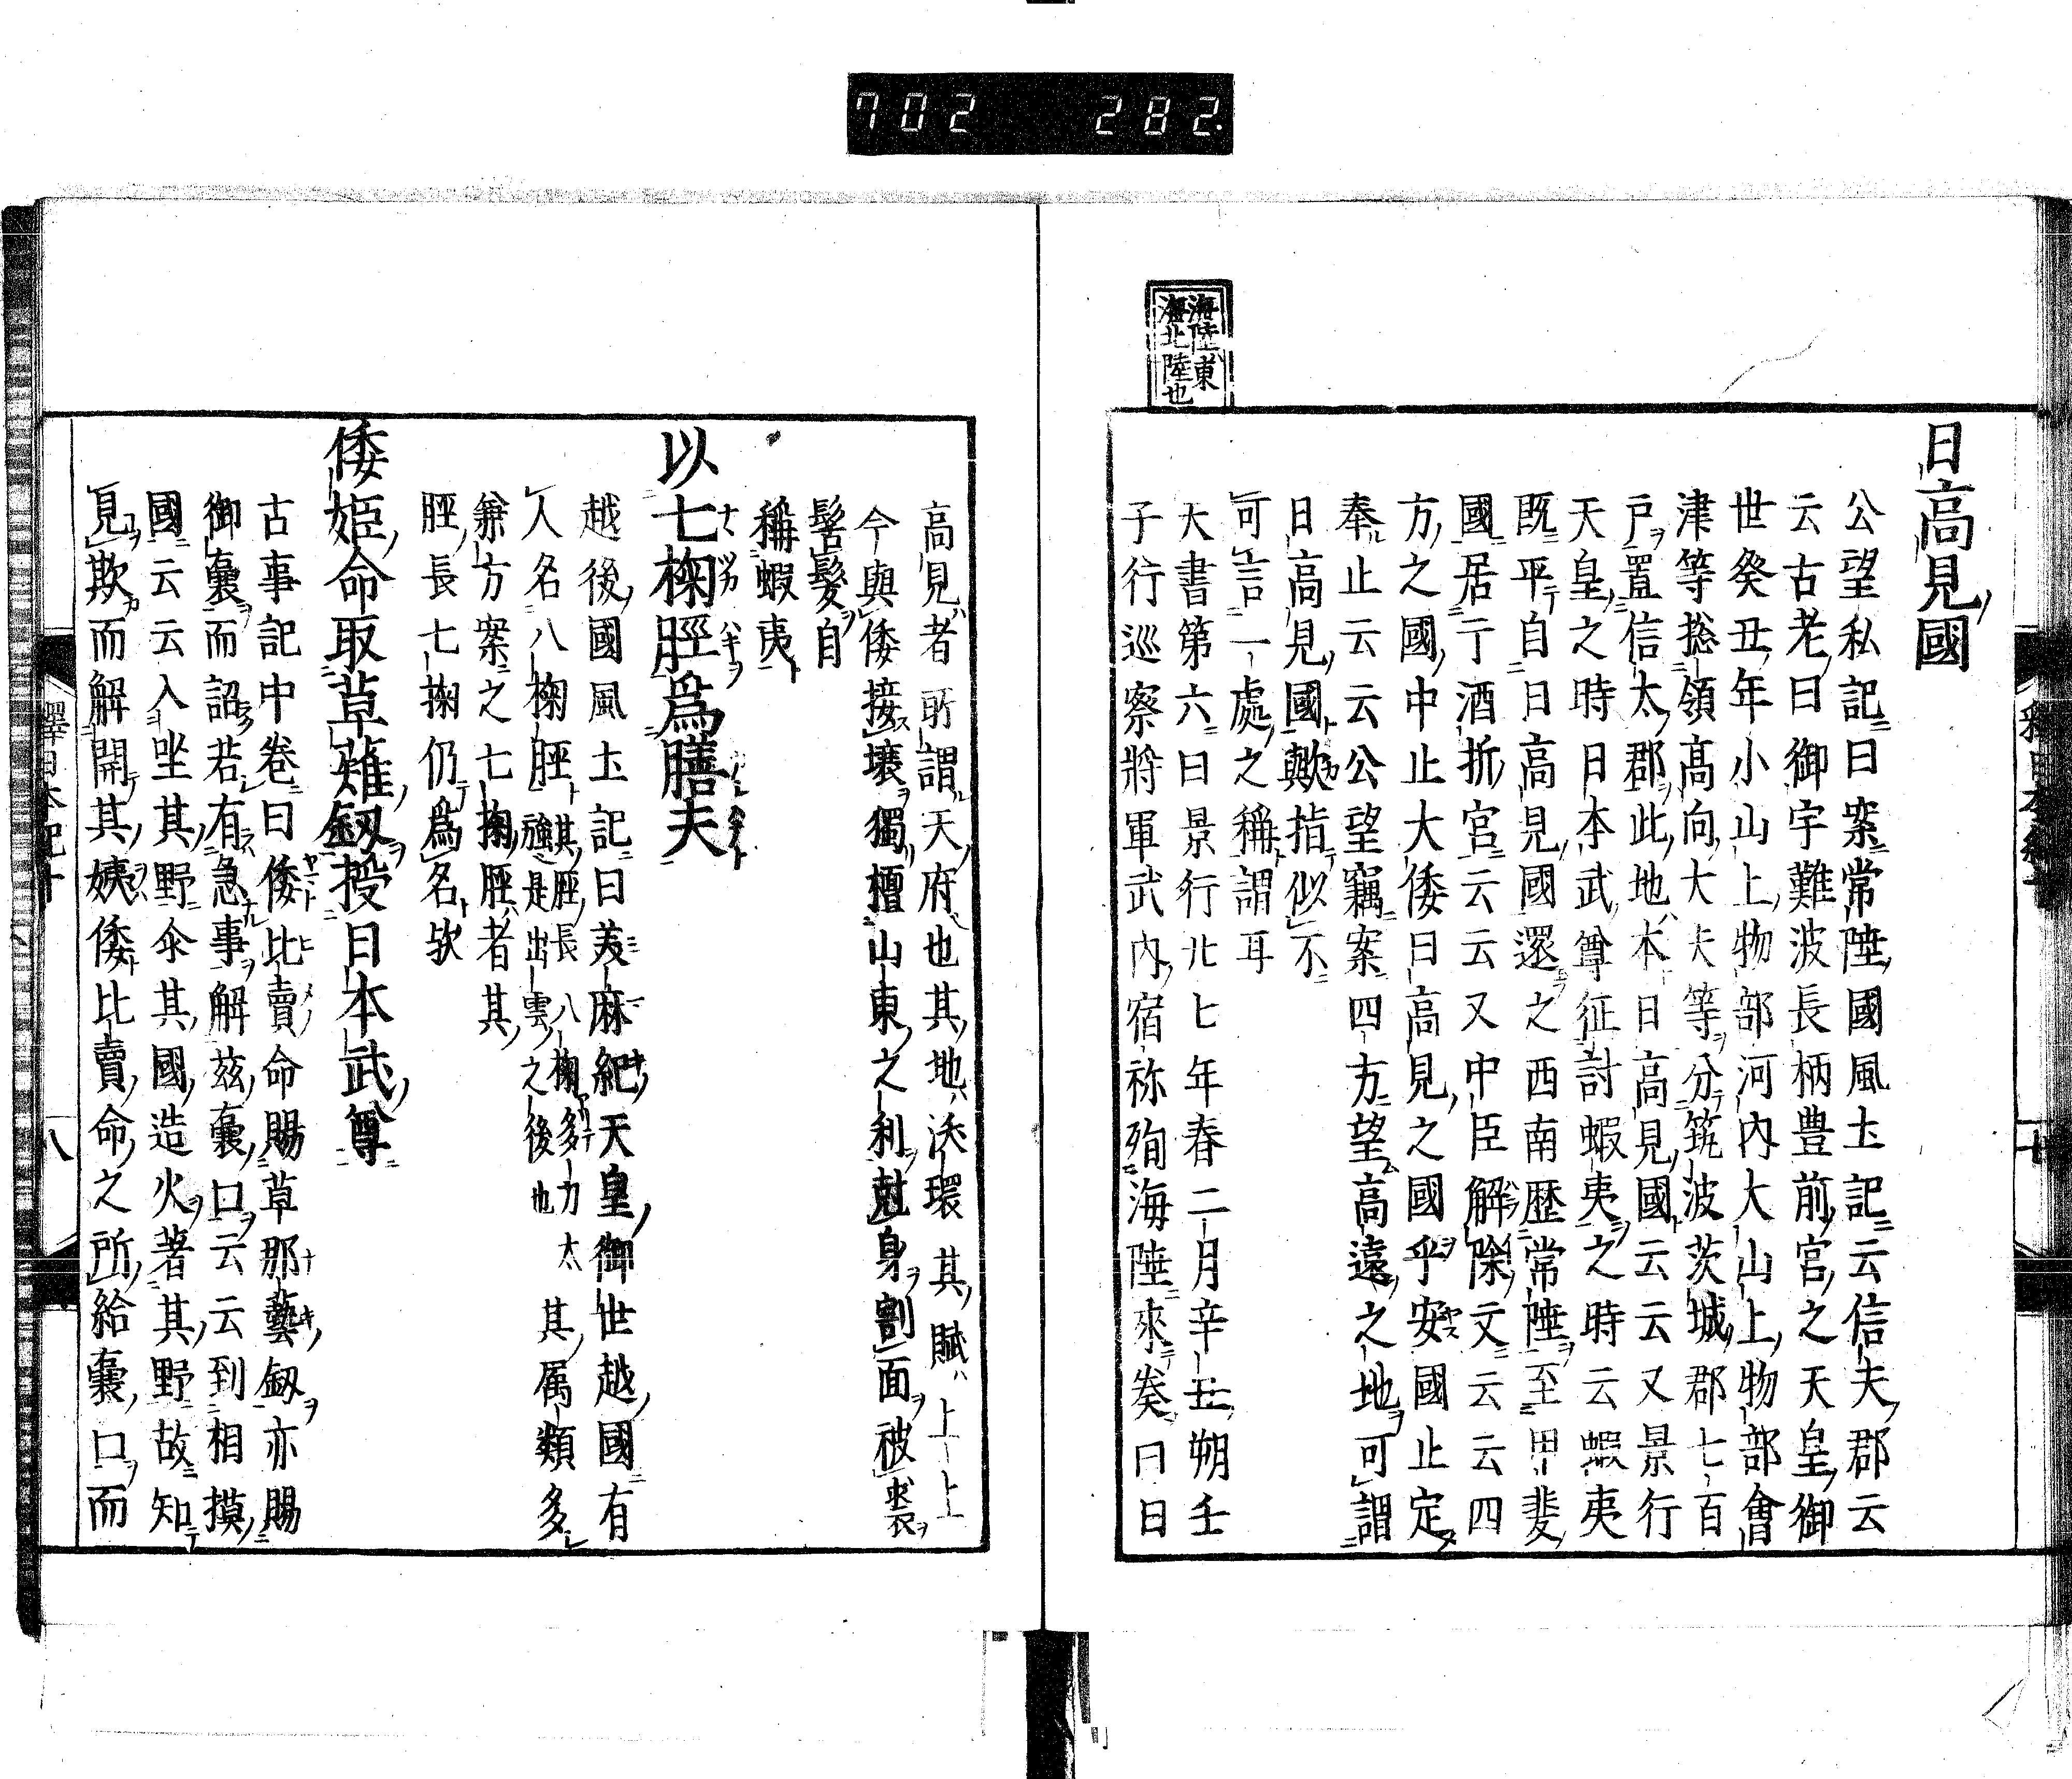 702 282
海陸東
海北陸也
日高見國
公望私記曰案常陸國風土記云信夫郡云
云古老曰御宇難波長柄豊前宮之天皇御
世癸丑年小山上物部河内大山上物部會
津等捴領髙向大夫等分筑波茨城郡七百
戸置信太郡此地本日高見國云云又景行
天皇之時日本武尊征討蝦夷之時云蝦夷
既平自日高見國還之西南歴常陸至甲斐
國居于酒折宮云云又中臣解除文云云四
方之國中止大倭日高見之國乎安國止定
奉止云云公望竊案四方望高遠之地可謂
日高見國歟指似不
可言一處之稱謂耳
大書第六曰景行廿七年春二月辛丑朔壬
子行巡察將軍武内宿祢殉海陸來奏曰日
高見者所謂天府也其地浹環其賦上上
今與倭接壤獨擅山東之利尅身割面被裘
髻髮自
稱蝦夷
以七掬脛爲膳夫
越後國風土記曰美麻紀天皇御世越國有
人名八掬脛其脛長八掬多力太
強是出雲之後也
其属類多
兼方案之七掬脛者其
脛長七掬仍爲名欤
倭姫命取草薙劔授日本武尊
古事記中巻曰倭比賣命賜草那藝劔亦賜
御嚢而詔若有急事解茲嚢口云云到相摸
國云云入坐其野尒其國造火著其野故知
見欺而解開其姨倭比賣命之所給嚢口而
八